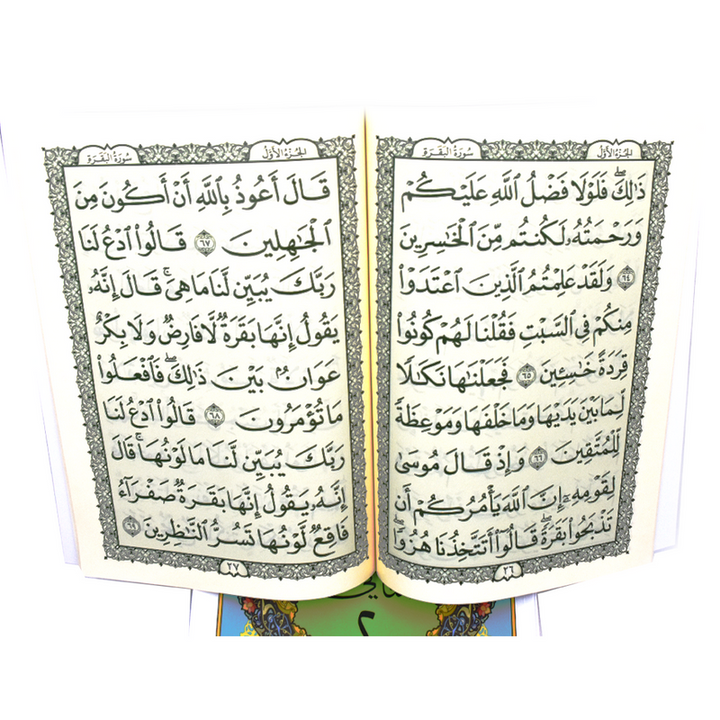 الجزء الأول
سورة البقرة
ذَٰلِكَ ۖ فَلَوْلَا فَضْلُ ٱللَّهِ عَلَيْكُمْ
وَرَحْمَتُهُۥ لَكُنتُم مِّنَ ٱلْخَٰسِرِينَ
٦٤ وَلَقَدْ عَلِمْتُمُ ٱلَّذِينَ ٱعْتَدَوْا۟
مِنكُمْ فِى ٱلسَّبْتِ فَقُلْنَا لَهُمْ كُونُوا۟
قِرَدَةً خَٰسِـِٔينَ ٦٥ فَجَعَلْنَٰهَا نَكَٰلًا
لِّمَا بَيْنَ يَدَيْهَا وَمَا خَلْفَهَا وَمَوْعِظَةً
لِّلْمُتَّقِينَ ٦٦ وَإِذْ قَالَ مُوسَىٰ
لِقَوْمِهِۦٓ إِنَّ ٱللَّهَ يَأْمُرُكُمْ أَن
تَذْبَحُوا۟ بَقَرَةً ۖ قَالُوٓا۟ أَتَتَّخِذُنَا هُزُوًا ۖ
٢٦
الجزء الأول
سورة البقرة
قَالَ أَعُوذُ بِٱللَّهِ أَنْ أَكُونَ مِنَ
ٱلْجَٰهِلِينَ ٦٧ قَالُوا۟ ٱدْعُ لَنَا
رَبَّكَ يُبَيِّن لَّنَا مَا هِىَ ۚ قَالَ إِنَّهُۥ
يَقُولُ إِنَّهَا بَقَرَةٌ لَّا فَارِضٌ وَلَا بِكْرٌ
عَوَانٌۢ بَيْنَ ذَٰلِكَ ۖ فَٱفْعَلُوا۟
مَا تُؤْمَرُونَ ٦٨ قَالُوا۟ ٱدْعُ لَنَا
رَبَّكَ يُبَيِّن لَّنَا مَا لَوْنُهَا ۚ قَالَ
إِنَّهُۥ يَقُولُ إِنَّهَا بَقَرَةٌ صَفْرَآءُ
فَاقِعٌ لَّوْنُهَا تَسُرُّ ٱلنَّٰظِرِينَ ٦٩
٢٧
٢